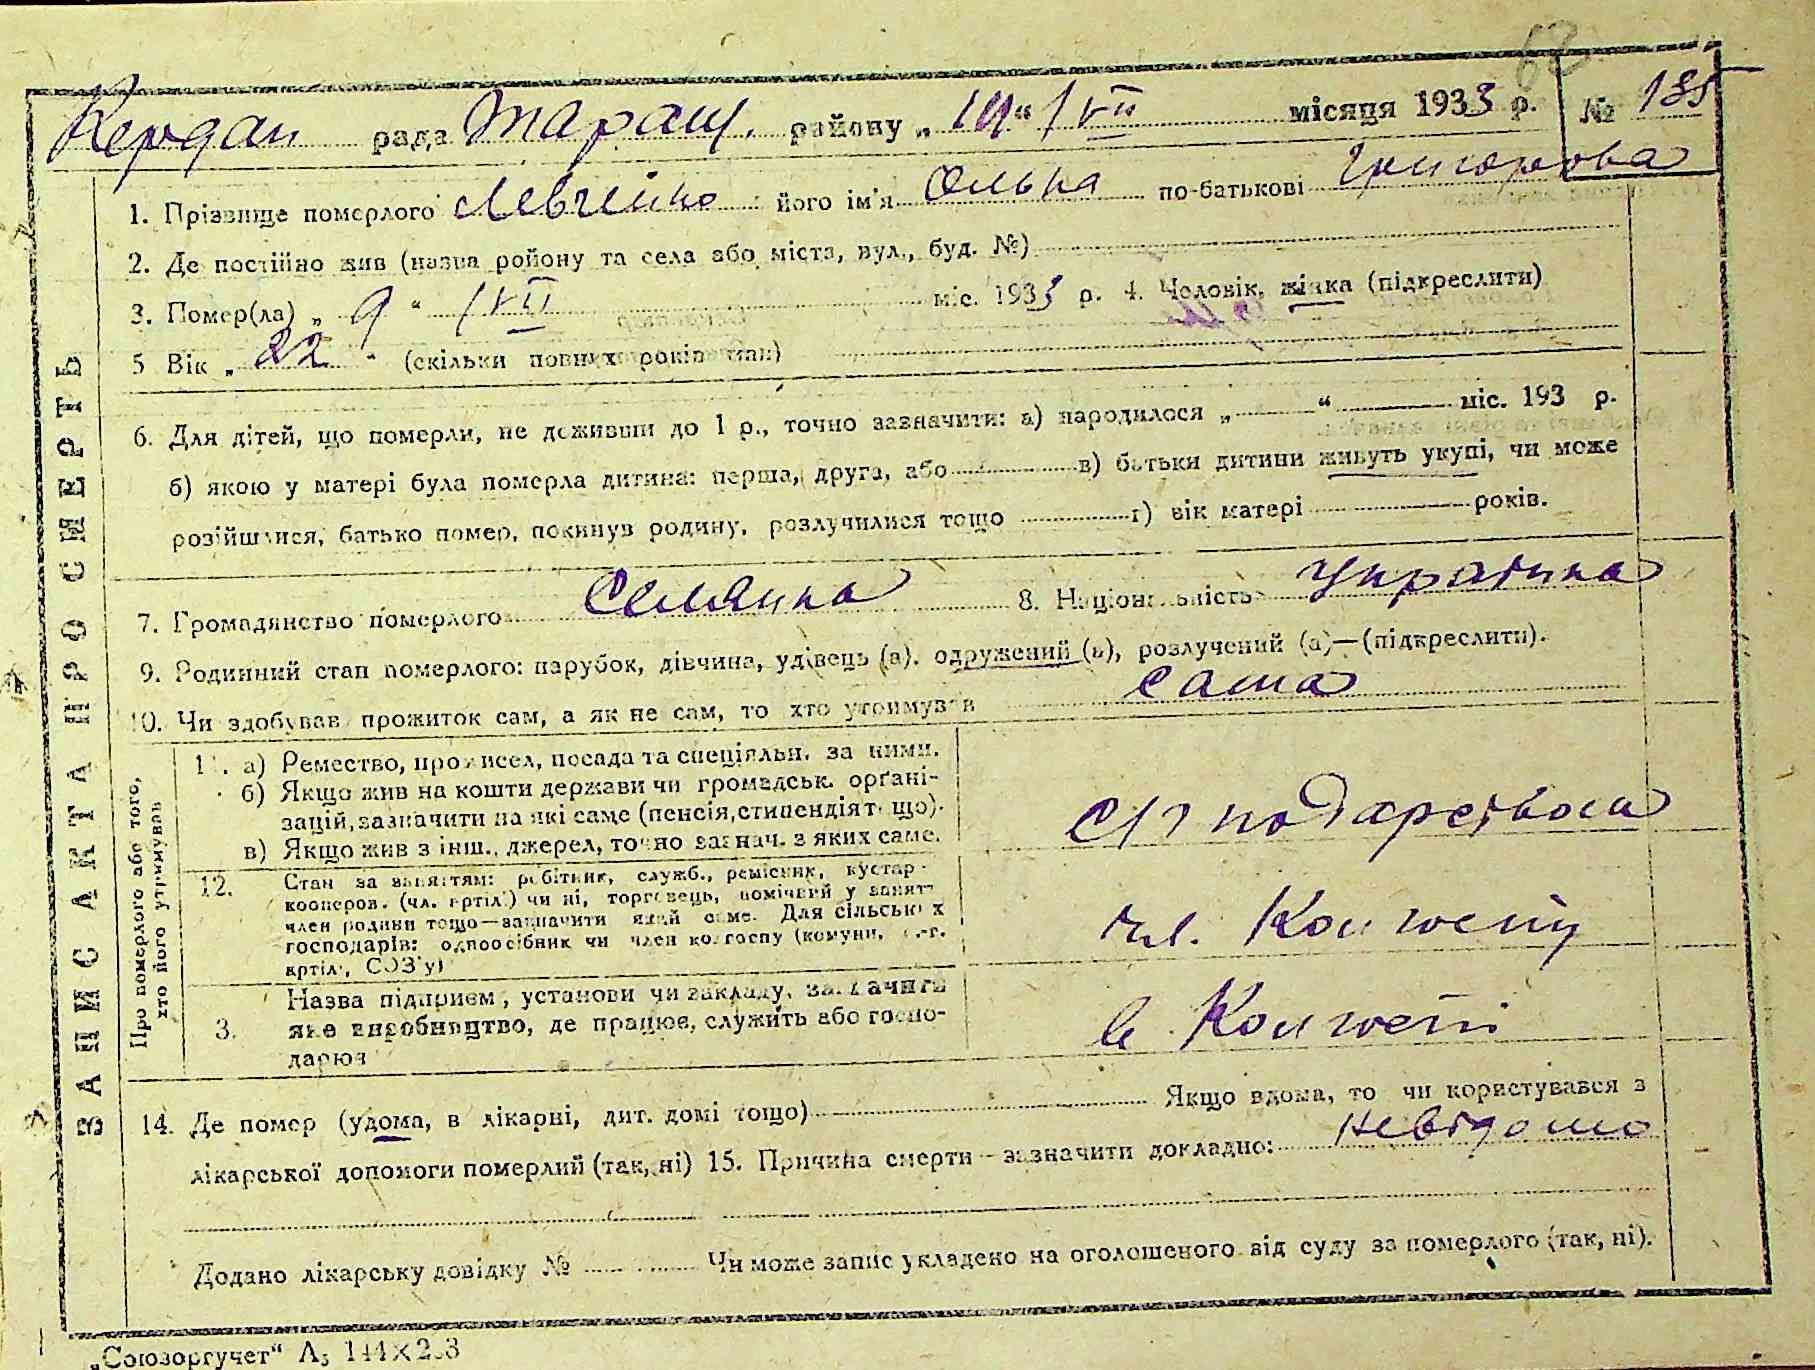 63
Кердан рада Таращ. району „ “ /VII місяця 1933 р. № 135
1. Прізвище померлого Левченко його ім'я Ольга по-батькові Григорова
2. Де постійно жив (назва району та села або міста, вул., буд. №)
3. Помер(ла) „ 9 “ /VII міс. 1933 р. 4. Чоловік, жінка (підкреслити)
5 Вік „ 22 “ (скільки повних років мав)
6. Для дітей, що померли, не доживши до 1 р., точно зазначити: а) народилося „ “ міс. 193 р.
б) якою у матері була померла дитина: перша, друга, або в) батьки дитини живуть укупі, чи може
розійшлися, батько помер, покинув родину, розлучилися тощо г) вік матері років.
7. Громадянство померлого селянка 8. Національність українка
9. Родинний стан померлого: парубок, дівчина, удівець (а), одружений (а), розлучений (а)—(підкреслити).
10. Чи здобував прожиток сам, а як не сам, то хто утримував сама
ЗАПИС АКТА ПРО СМЕРТЬ
Про померлого або того, хто його утримував
11. а) Ремество, промисел, посада та спеціяльн. за ними.
б) Якщо жив на кошти держави чи громадськ. органі-
зацій, зазначити на які саме (пенсія, стипендія т. що).
в) Якщо жив з інш., джерел, точно зазнач. з яких саме.
с/господарством
12. Стан за заняттям: робітник, служб., ремісник, кустар
кооперов. (чл. артілі) чи ні, торговець, помічний у занят.
член родини тощо—зазначити який саме. Для сільських
господарів: одноосібник чи член колгоспу (комуни, с.-г.
артілі, СОЗ'у)
чл. Колгоспу
3. Назва підприєм., установи чи закладу, зазначити
яке виробництво, де працює, служить або госпо-
дарює
в Колгоспі
14. Де помер (удома, в лікарні, дит. домі тощо) Якщо вдома, то чи користувався з
лікарської допомоги померлий (так, ні) 15. Причина смерти—зазначити докладно: невідомо
Додано лікарську довідку № Чи може запис укладено на оголошеного від суду за померлого (так, ні).
„Союзоргучет“ А5 144×203